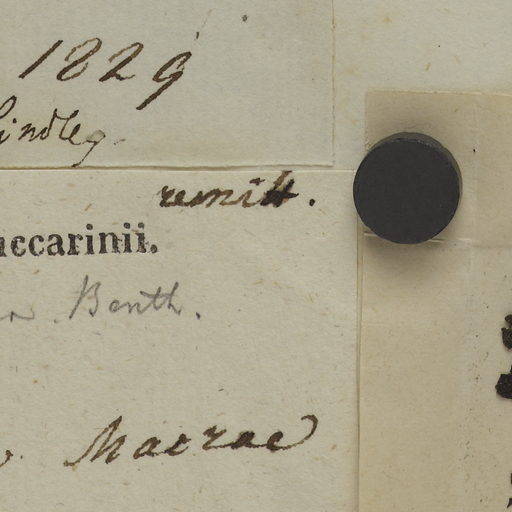 1829
Lindley
remitt.
uccarinii.
Benth.
Macrae